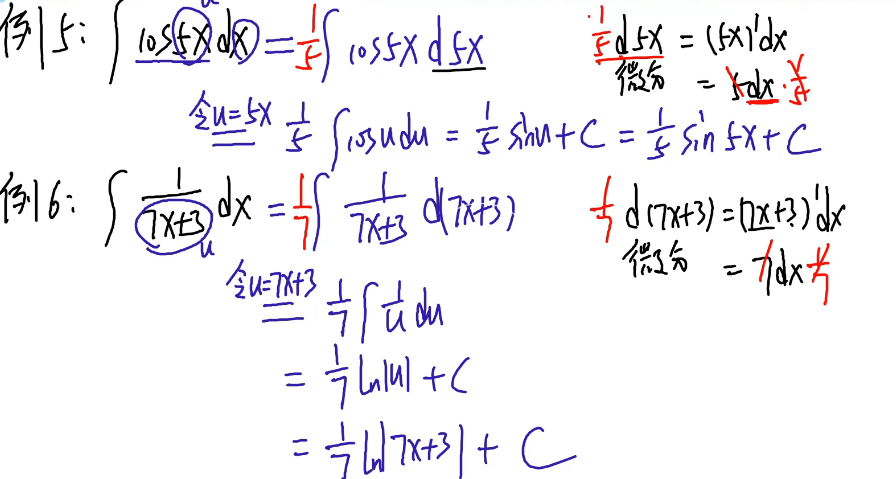 例5: ∫ cos5x dx = 1/5 ∫ cos5x d5x
u
1/5 d5x = (5x)'dx
微分 = 5dx · 1/5
令u=5x 1/5 ∫ cosu du = 1/5 sinu + C = 1/5 sin5x + C
例6: ∫ 1/(7x+3) dx = 1/7 ∫ 1/(7x+3) d(7x+3)
u
1/7 d(7x+3) = (7x+3)'dx
微分 = 7dx 1/7
令u=7x+3 = 1/7 ∫ 1/u du
= 1/7 ln|u| + C
= 1/7 ln|7x+3| + C